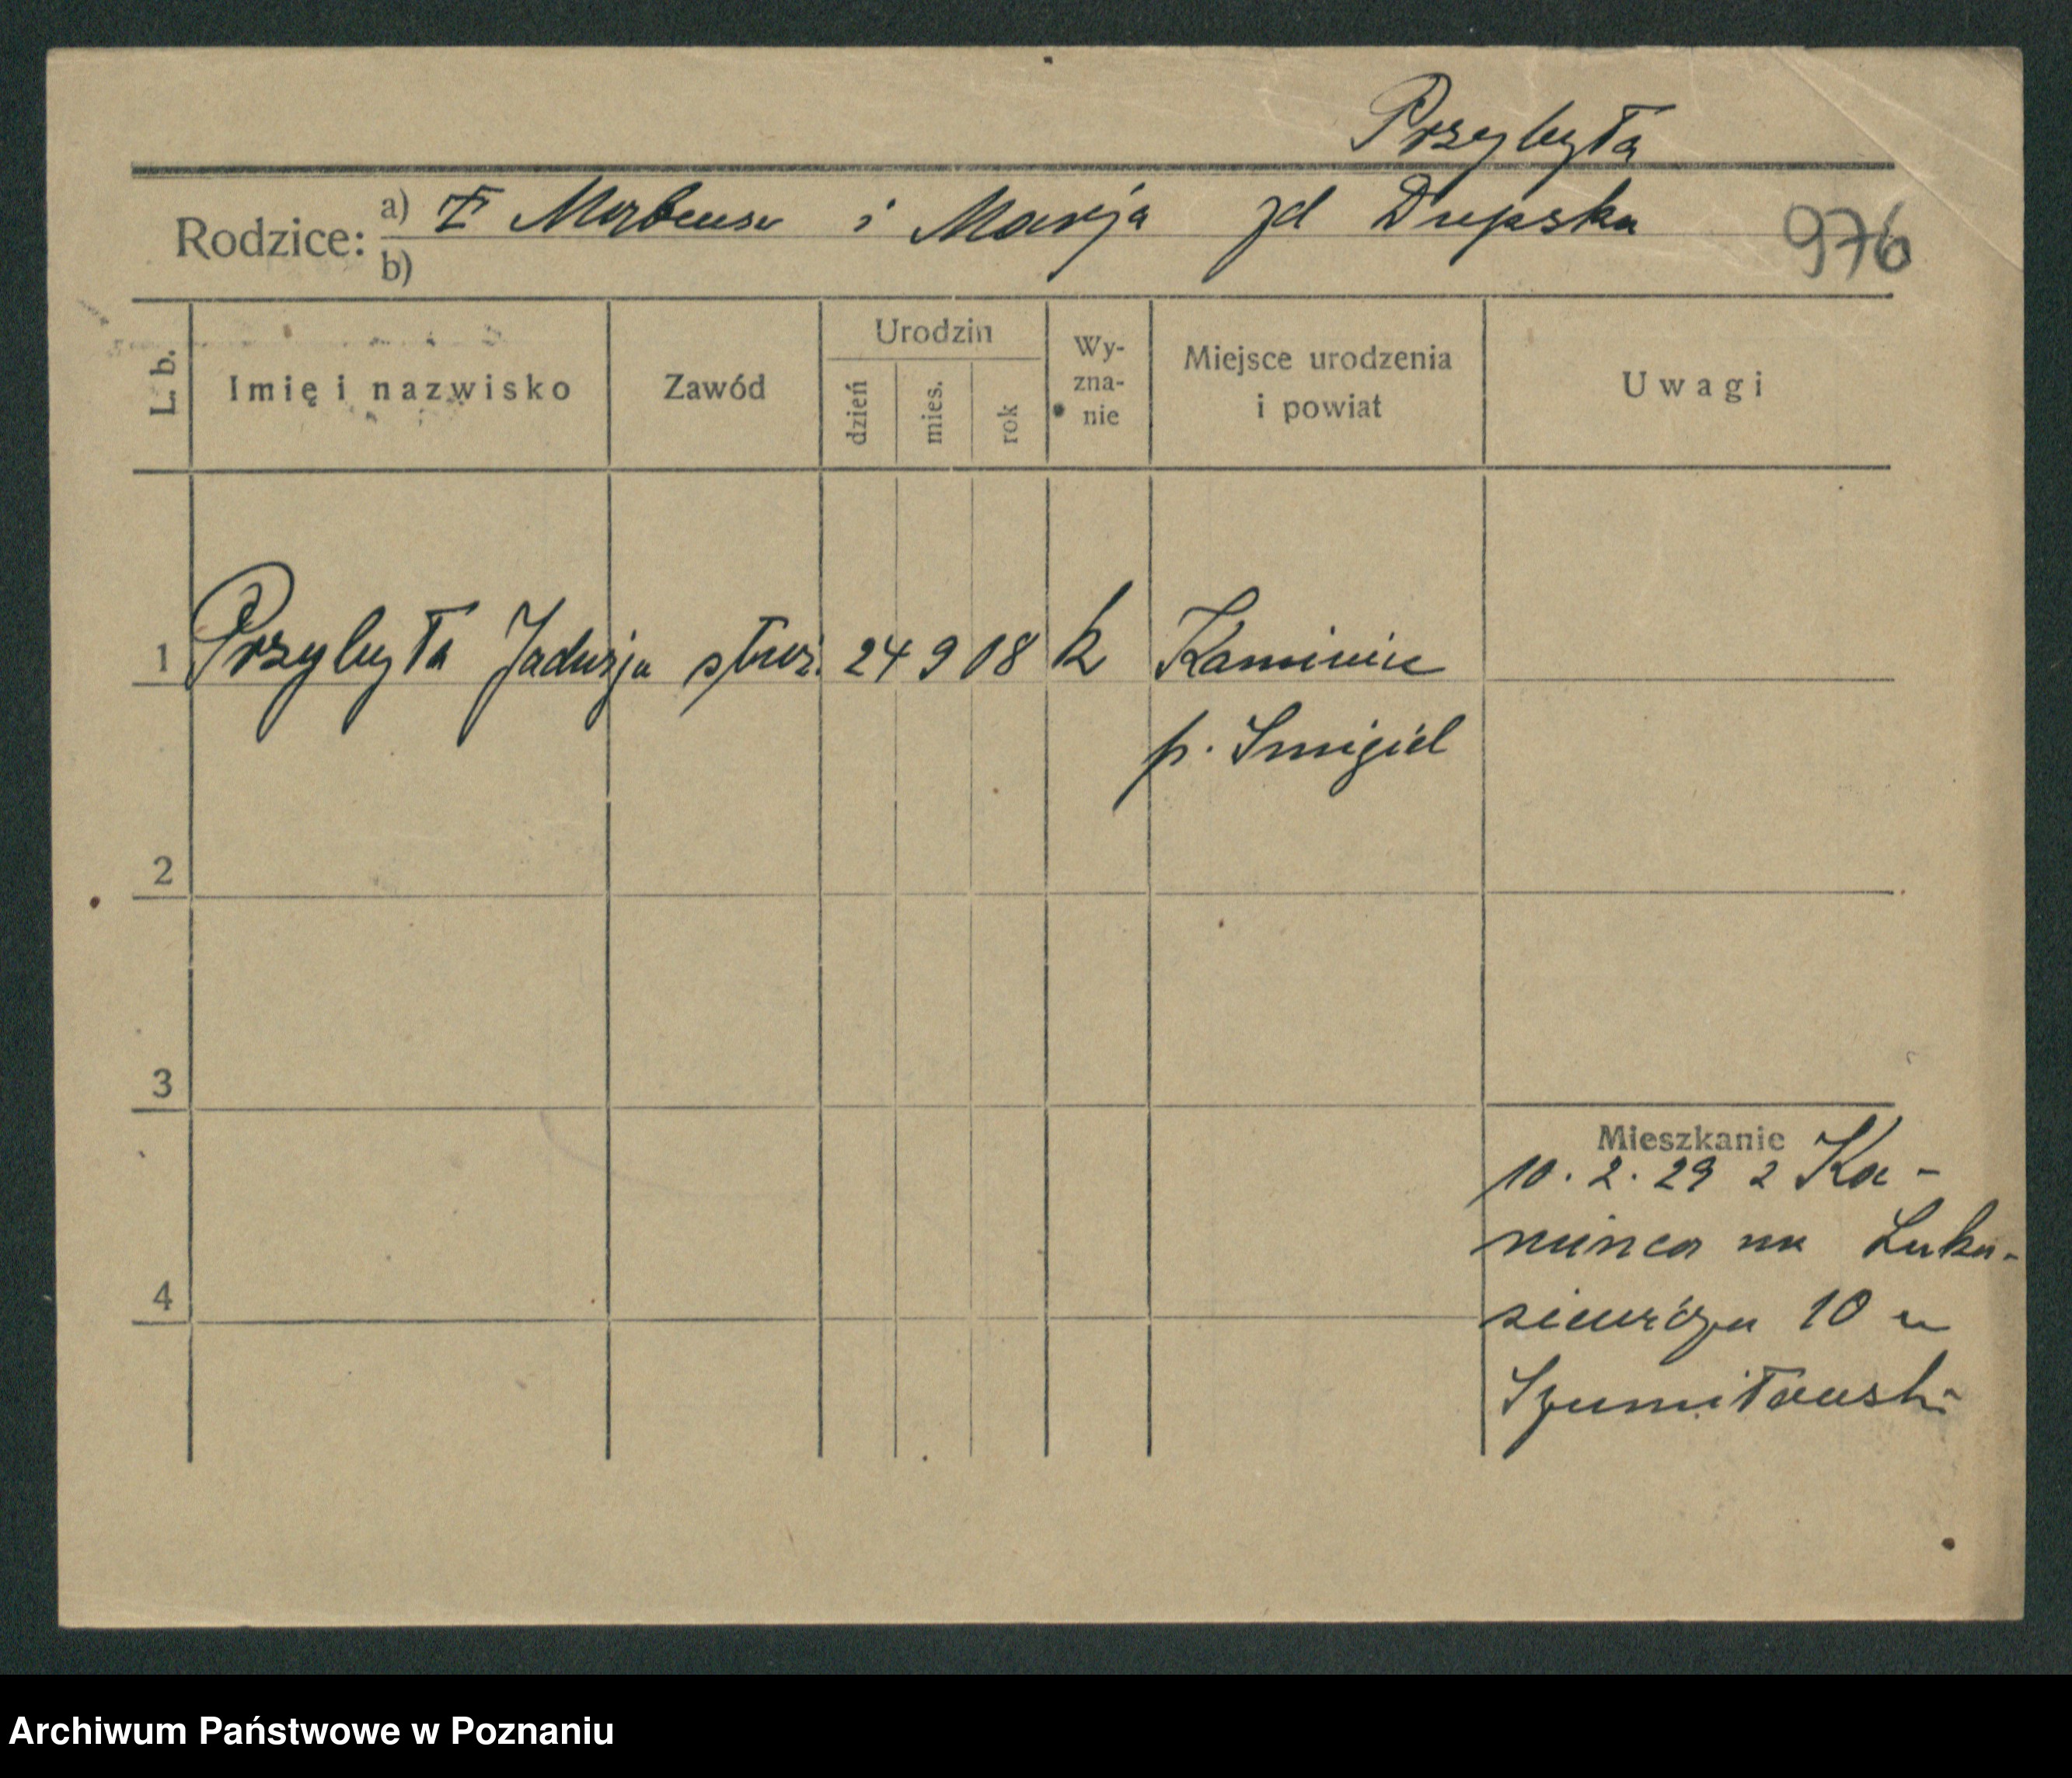 Przybyła
Rodzice: a) i Marja zd Dupska
b)
976
L. b. Imię i nazwisko Zawód Urodzin dzień mies. rok Wy- zna- nie Miejsce urodzenia i powiat Uwagi
1 Przybyła Jadwiga służ. 24 9 08 k Kamieniec
p. Smigiel
2
3
Mieszkanie
10. 2. 29 z Ka-
mińca na Luka-
4
siewicza 10 u
Szumiłowski
Archiwum Państwowe w Poznaniu